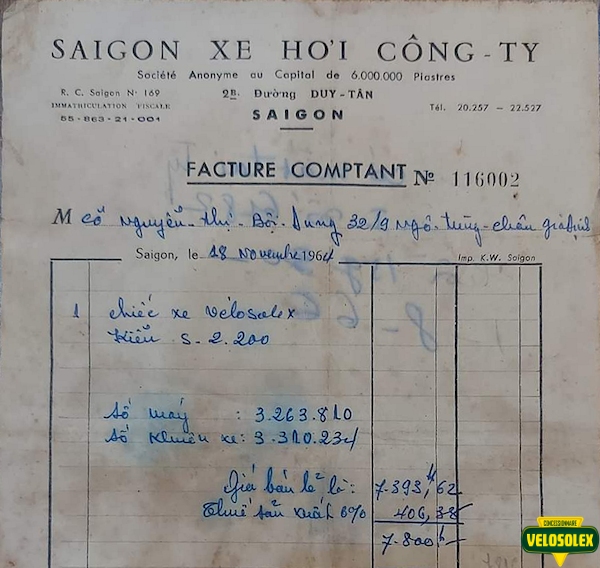 SAIGON XE HƠI CÔNG-TY
Société Anonyme au Capital de 6.000.000 Piastres
R. C. Saigon N° 169
2B. Đường DUY-TÂN
IMMATRICULATION FISCALE
Tél. 20.257 – 22.527
55-863-21-001
SAIGON
FACTURE COMPTANT N° 116002
M cô Nguyễn-thị-Bội-Dung 32/9 Ngô-tùng-châu
Saigon, le 18 Novembre 1964
Imp. K.W. Saigon
1 chiếc xe Vélosolex
Kiểu S-2.200
Số máy : 3.263.810
Số khuôn xe: 3.310.234
Giá bán lẻ là: 7.393,62
Thuế sản xuất 6% 406,38
7.800
CONCESSIONNAIRE
VELOSOLEX